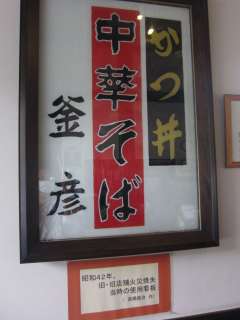 かつ丼
中華そば
釜彦
昭和42年、
旧・旧店舗火災焼失
当時の使用看板